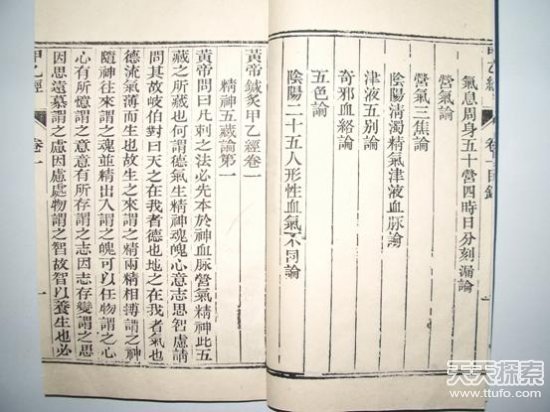 乙經 卷一目錄
氣息周身五十營四時日分刻漏論
營氣論
營氣三焦論
陰陽淸濁精氣津液血脉論
津液五別論
奇邪血絡論
五色論
陰陽二十五人形性血氣不同論
黃帝鍼灸甲乙經卷一
精神五藏論第一
黃帝問曰凡刺之法必先本於神血脉營氣精神此五
藏之所藏也何謂德氣生精神魂魄心意志思智慮請
問其故岐伯對曰天之在我者德也地之在我者氣也
德流氣薄而生也故生之來謂之精兩精相搏謂之神
隨神往來謂之魂並精出入謂之魄可以任物謂之心
心有所憶謂之意意有所存謂之志因志存變謂之思
因思遠慕謂之慮因慮處物謂之智故智以養生也必
甲乙經 卷一 一
天天探索
www.ttufo.com